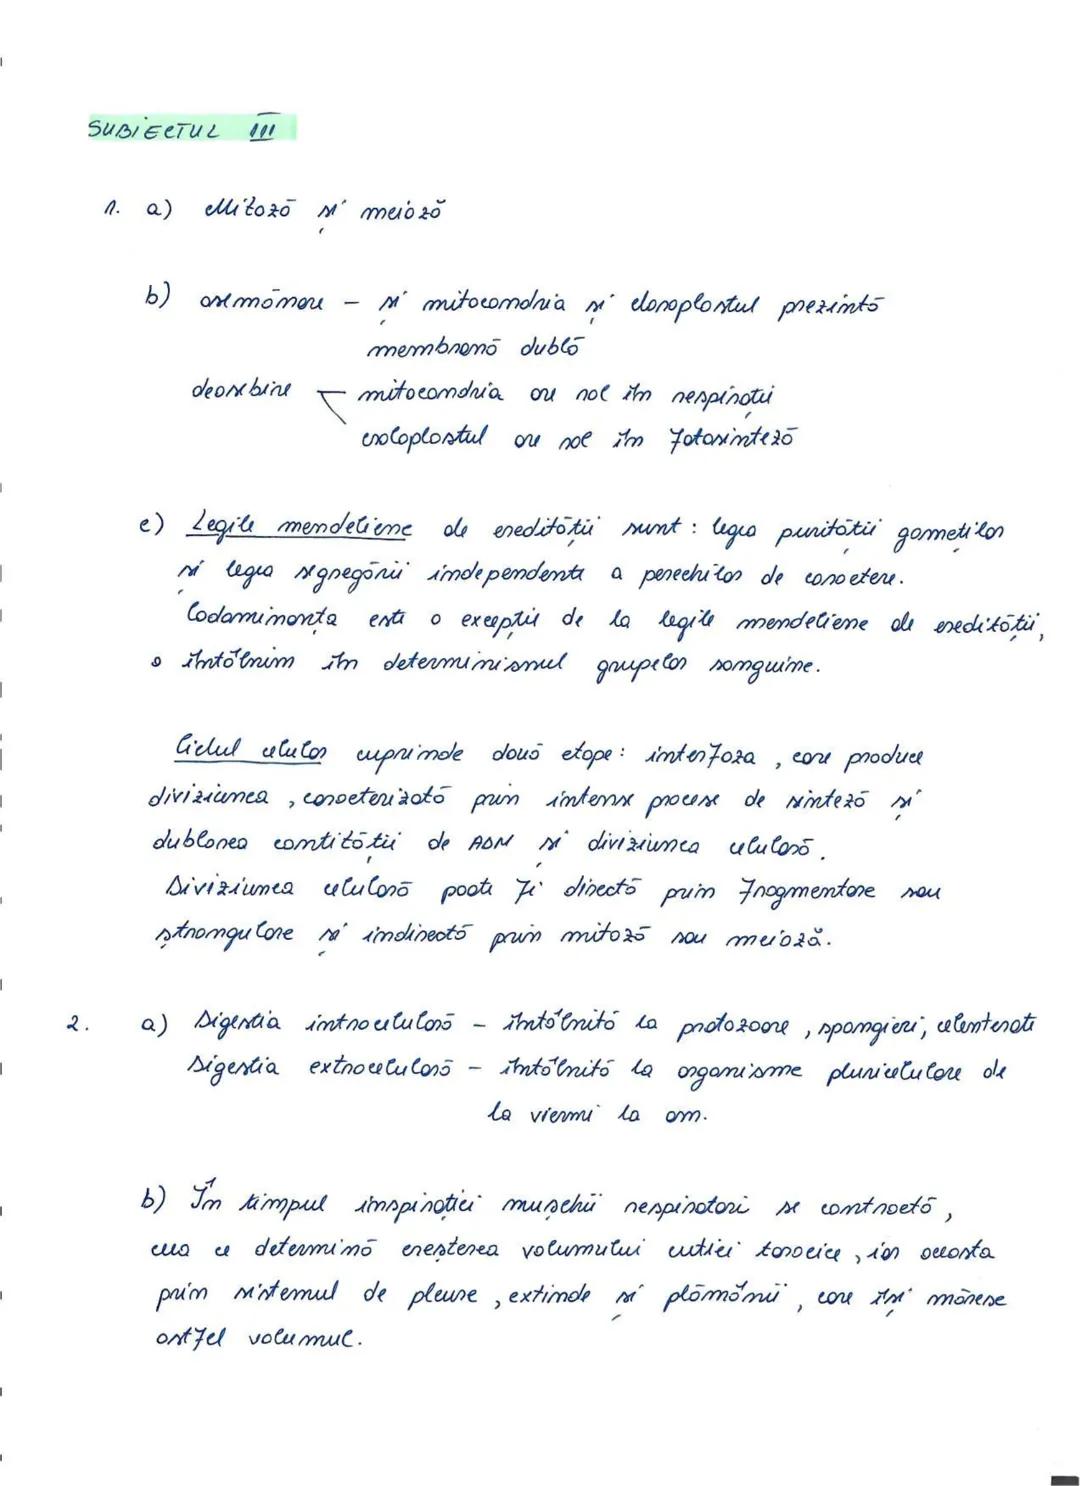 SUBIECTUL III
1. a) Mitoză și meioză
b) asemănare - și mitocondria și cloroplastul prezintă
membrană dublă
deosebire mitocondria are rol în respirații
cloroplastul are rol în fotosinteză
c) Legile mendeliene ale eredității sunt: legea purității gameților
și legea segregării independente a perechilor de caractere.
Codominanța este o excepție de la legile mendeliene ale eredității,
o întâlnim în determinismul grupelor sanguine.
Ciclul celular cuprinde două etape: interfaza, care produce
diviziunea, caracterizată prin intense procese de sinteză și
dublarea cantității de ADN și diviziunea celulară.
Diviziunea celulară poate fi directă prin fragmentare sau
ștrangulare și indirectă prin mitoză sau meioză.
2. a) Digestia intracelulară - întâlnită la protozoare, spongieri, celenterate
Digestia extracelulară - întâlnită la organisme pluricelulare de
la viermi la om.
b) În timpul inspirației mușchii respiratori se contractă,
ceea ce determină creșterea volumului cutiei toracice, iar aceasta
prin sistemul de pleure, extinde și plămânii, care își măresc
astfel volumul.